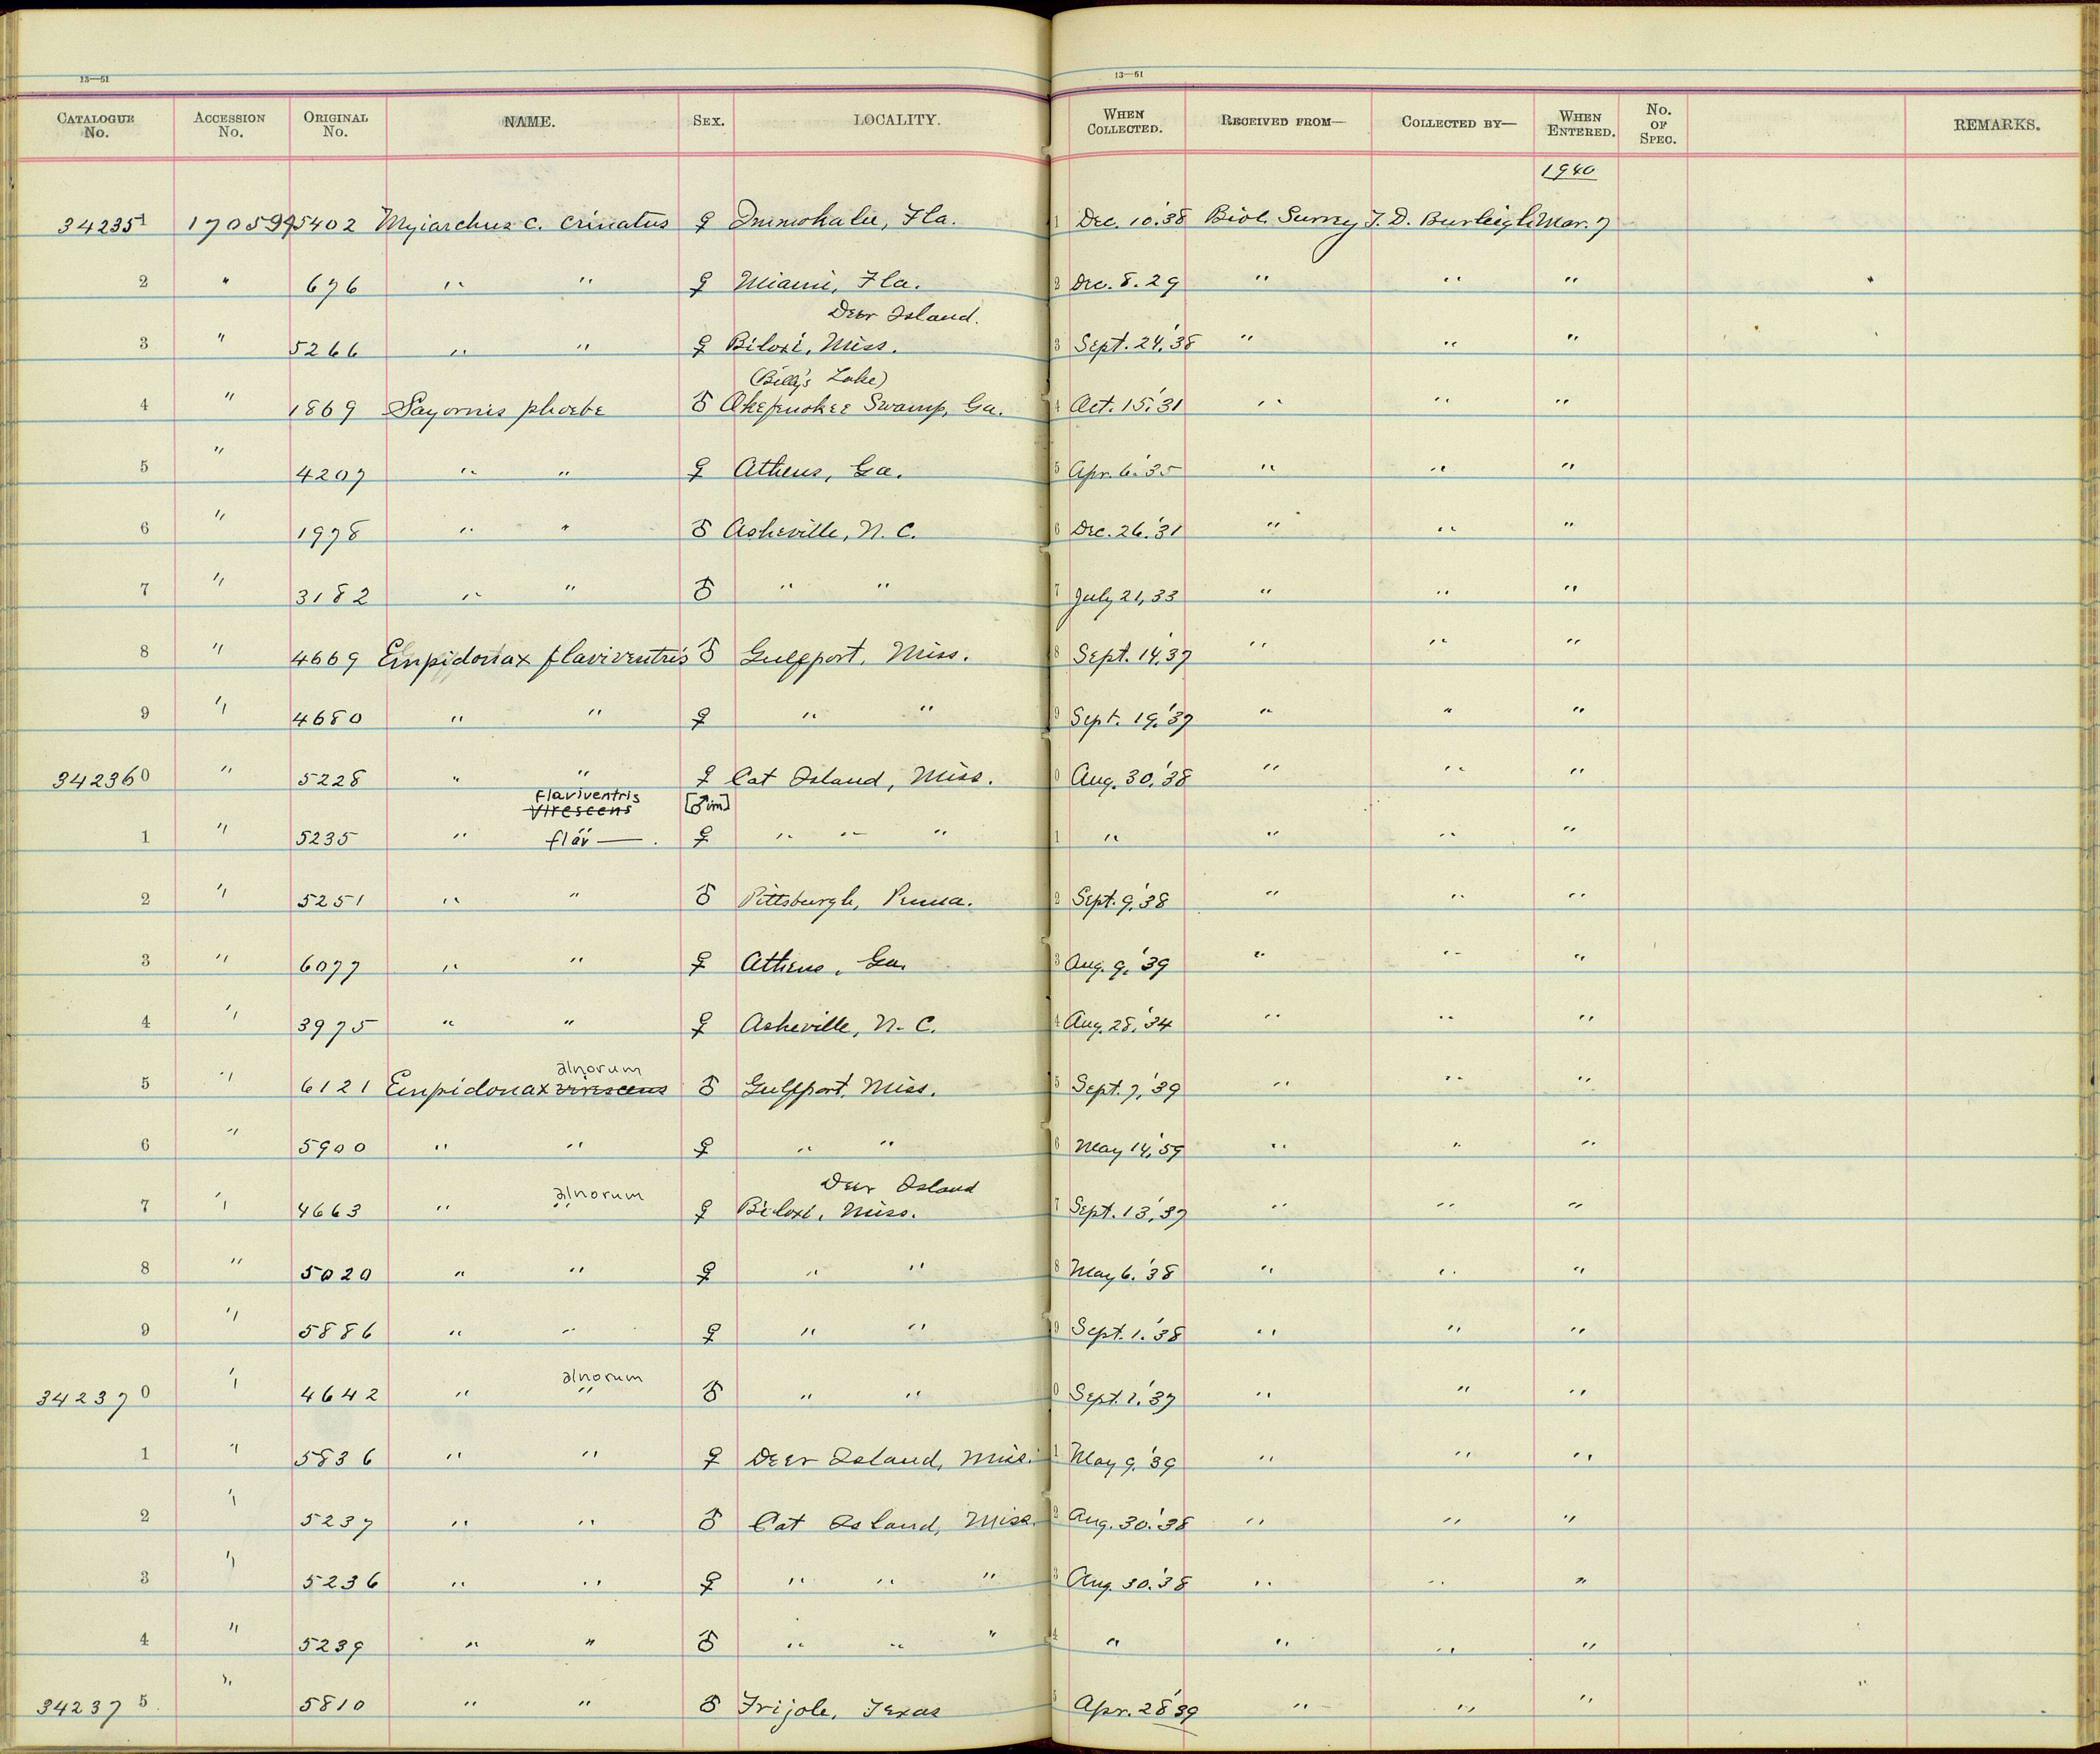 13—51 13—51
CATALOGUE No. ACCESSION No. ORIGINAL No. NAME. SEX. LOCALITY. WHEN COLLECTED. RECEIVED FROM— COLLECTED BY— WHEN ENTERED. No. OF SPEC. REMARKS.
1940
342351 170594 5402 Myiarchus c. crinatus ♀ Immokalee, Fla. 1 Dec. 10.'38 Biol. Survey T. D. Burleigh Mar. 7
2 " 676 " " ♀ Miami, Fla. 2 Dec. 8. 29 " " "
Deer Island.
3 " 5266 " " ♀ Biloxi, Miss. 3 Sept. 24.'38 " " "
(Billy's Lake)
4 " 1869 Sayornis phoebe ♂ Okefenokee Swamp, Ga. 4 Oct. 15.'31 " " "
5 " 4207 " " ♀ Athens, Ga. 5 Apr. 6.'35 " " "
6 " 1978 " " ♂ Asheville, N. C. 6 Dec. 26.'31 " " "
7 " 3182 " " ♂ " " 7 July 21, 33 " " "
8 " 4669 Empidonax flaviventris ♂ Gulfport, Miss. 8 Sept. 14,'37 " " "
9 " 4680 " " ♀ " " 9 Sept. 19.'37 " " "
342360 " 5228 " " ♀ Cat Island, Miss. 0 Aug. 30,'38 " " "
flaviventris
virescens [♂ im]
1 " 5235 " flav—. ♀ " " " 1 " " " "
2 " 5251 " " ♂ Pittsburgh, Penna. 2 Sept. 9,'38 " " "
3 " 6077 " " ♀ Athens, Ga. 3 Aug. 9,'39 " " "
4 " 3975 " " ♀ Asheville, N. C. 4 Aug. 28,'34 " " "
alnorum
5 " 6121 Empidonax virescens ♂ Gulfport, Miss. 5 Sept. 7,'39 " " "
6 " 5900 " " ♀ " " 6 May 14,'39 " " "
alnorum Deer Island
7 " 4663 " " ♀ Biloxi, Miss. 7 Sept. 13,'37 " " "
8 " 5020 " " ♀ " " 8 May 6.'38 " " "
9 " 5886 " " ♀ " " 9 Sept. 1.'38 " " "
alnorum
342370 " 4642 " " ♂ " " 0 Sept. 1.'37 " " "
1 " 5836 " " ♀ Deer Island, Miss. 1 May 9,'39 " " "
2 " 5237 " " ♂ Cat Island, Miss. 2 Aug. 30.'38 " " "
3 " 5236 " " ♀ " " " 3 Aug. 30.'38 " " "
4 " 5239 " " ♂ " " " 4 " " " "
342375 " 5810 " " ♂ Frijole, Texas 5 Apr. 28'39 " " "